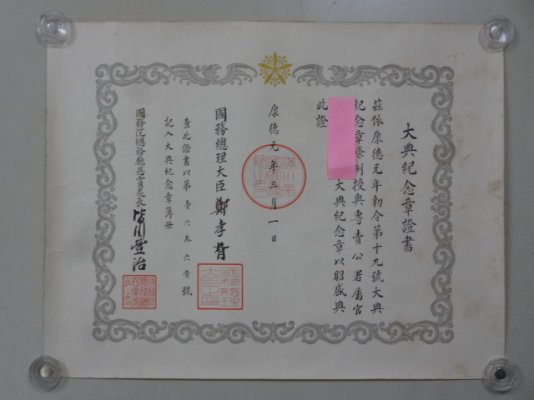 大典紀念章證書
茲依康德元年勅令第十九號大典
紀念章條例授與專賣公署屬官
大典紀念章以昭盛典
此證
康德元年三月一日
國務總理大臣鄭孝胥
查此證書以第壹六五六壹號
記入大典紀念章簿冊
國務院總務廳恩賞處長皆川豐治